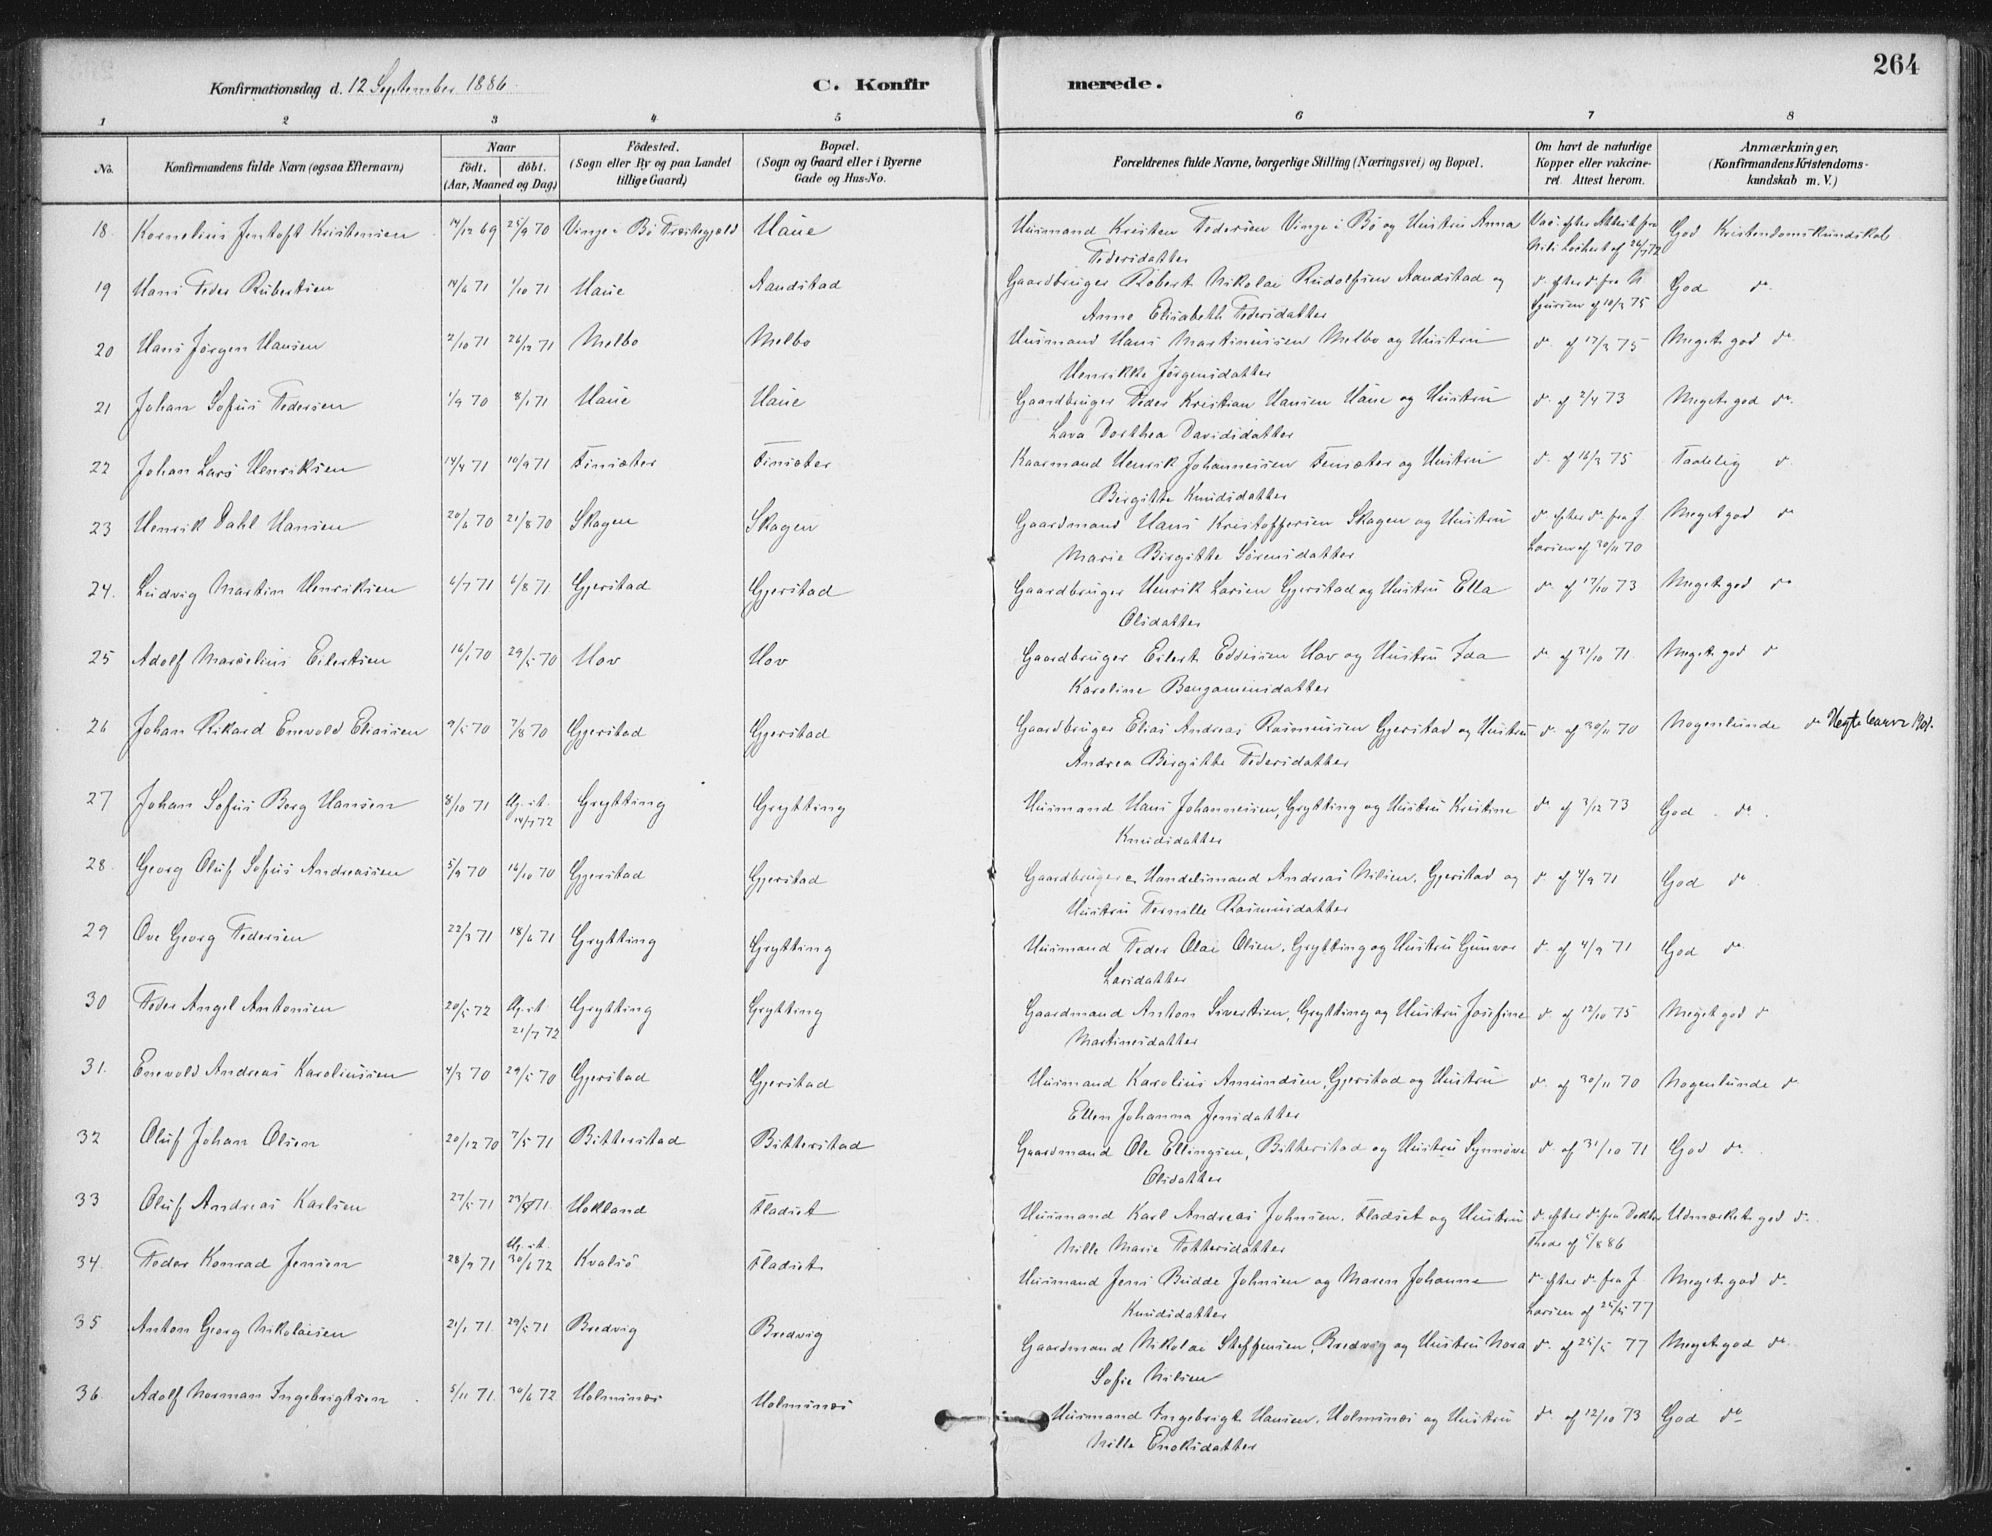 264
Konfirmationsdag d. 12 September 1886
C. Konfir merede.
1 2 3 4 5 6 7 8
No. Konfirmandens fulde Navn (ogsaa Efternavn) Naar født. døbt. (Aar, Maaned og Dag) Fødested. (Sogn eller By og paa Landet tillige Gaard) Bopæl. (Sogn og Gaard eller i Byerne Gade og Hus-No. Forældrenes fulde Navne, borgerlige Stilling (Næringsvei) og Bopæl. Om havt de naturlige Kopper eller vakcineret. Attest herom. Anmærkninger, (Konfirmandens Kristendomskundskab m. V.)
18. Kornelius Jentoft Kristensen 14/12 69 25/9 70 Vinje i Bø Præstegjæld Haue Husmand Kristen Pedersen Vinje i Bø og Hustru Anna
Pedersdatter God Kristendomskundskab
19 Hans Peder Robertsen 14/6 71 1/10 71 Haue Aandstad Gaardbruger Robert Nikolai Rudolfsen Aandstad og
Anne Elisabeth Pedersdatter 10/3 75 God do
20 Hans Jørgen Hansen 2/10 71 26/12 71 Melbo Melbo Husmand Hans Martinussen Melbo og Hustru
Henrikke Jørgensdatter do af 17/3 75 Meget god do
21 Johan Sofus Pedersen 1/9 70 8/1 71 Haue Haue Gaardbruger Peder Kristian Hansen Haue og Hustru
Lava Dorthea Davidsdatter do af 2/4 73 Meget god do
22 Johan Lars Henriksen 14/4 71 10/9 71 Finsæter Finsæter Kaarmand Henrik Johannessen Finsæter og Hustru
Birgitte Knudsdatter do af 16/3 75 Taalelig do
23 Henrik Dahl Hansen 20/6 70 21/8 70 Skagen Skagen Gaardmand Hans Kristoffersen Skagen og Hustru
Marie Birgitte Sørensdatter do efter do fra J
Larsen af 30/11 70 Meget god do
24. Ludvig Martin Henriksen 6/7 71 6/8 71 Gjerstad Gjerstad Gaardbruger Henrik Larsen Gjerstad og Hustru Ella
Olsdatter do af 17/10 73 Meget god do
25 Adolf Marselius Eilertsen 16/1 70 29/5 70 Hov Hov Gaardbruger Eilert Eddissen Hov og Hustru Ida
Karoline Bengaminsdatter do af 31/10 71. Meget god do
26 Johan Rikard Enevold Eliassen 9/5 70 7/8 70 Gjerstad Gjerstad Gaardbruger Elias Andreas Rasmussen Gjerstad og Hustru
Andrea Birgitte Pedersdatter do af 30/11 70 Nogenlunde do
27 Johan Sofus Borg Hansen 8/10 71 14/7 72 Grytting Grytting Husmand Hans Johannessen, Grytting og Hustru Kristine
Knudsdatter do af 3/12 73 God do.
28. Georg Oluf Sofus Andreassen 5/9 70 16/10 70 Gjerstad Gjerstad Gaardbruger & Handelsmand Andreas Nilsen, Gjerstad og
Hustru Pernille Rasmusdatter do af 4/9 71 God do
29 Ove Georg Pedersen 22/3 71 18/6 71 Grytting Grytting Husmand Peder Olai Olsen, Grytting og Hustru Gunvor
Larsdatter do af 4/9 71 God do
30 Peder Angel Antonsen 20/5 72 21/7 72 Grytting Grytting Gaardmand Anton Sivertsen, Grytting og Hustru Josefine
Martinesdatter do af 12/10 75 Meget god do
31. Enevold Andreas Karoliussen 4/3 70 29/5 70 Gjerstad Gjerstad Husmand Karolius Amundsen, Gjerstad og Hustru
Ellen Johanna Jensdatter do af 30/11 70 Nogenlunde do
32 Oluf Johan Olsen 20/12 70 7/5 71 Bitterstad Bitterstad Gaardmand Ole Ellingsen, Bitterstad og Hustru Synnøve
Olsdatter do af 31/10 71 God do.
33 Oluf Andreas Karlsen 27/5 71 Hokland Fladset Husmand Karl Andreas Johnsen, Fladset og Hustru
Nille Marie Pettersdatter do efter do fra Doktor
Thode af 5/8 86 Udmærket god do
34. Peder Konrad Jensen 28/9 71 30/6 72 Kvalsö Fladset Husmand Jens Budde Johnsen og Maren Johanna
Knudsdatter do efter do fra J
Larsen af 25/5 77 Meget god do
35 Anton Georg Nikolaisen 21/1 71. 29/5 71 Bredvig Bredvig Gaardmand Nikolai Steffensen, Bredvig og Hustru Nora
Sofie Nilsen do af 25/5 77 Meget god do
36. Adolf Norman Ingebrigtsen 5/11 71. 30/6 72 Holmsnes Holmsnes Husmand Ingebrigt Hansen, Holmsnes og Hustru
Nille Enoksdatter do af 12/10 73 God do